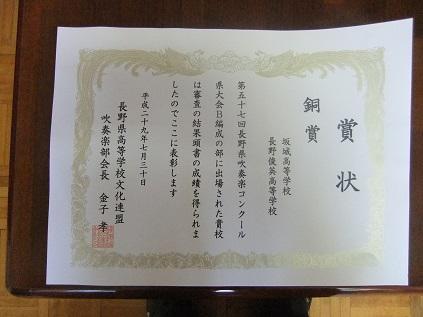 賞状
銅賞
坂城高等学校
長野俊英高等学校
第五十七回長野県吹奏楽コンクール
県大会B編成の部に出場された貴校
は審査の結果頭書の成績を得られま
したのでここに表彰します
平成二十九年七月三十日
長野県高等学校文化連盟
吹奏楽部会長 金子 孝